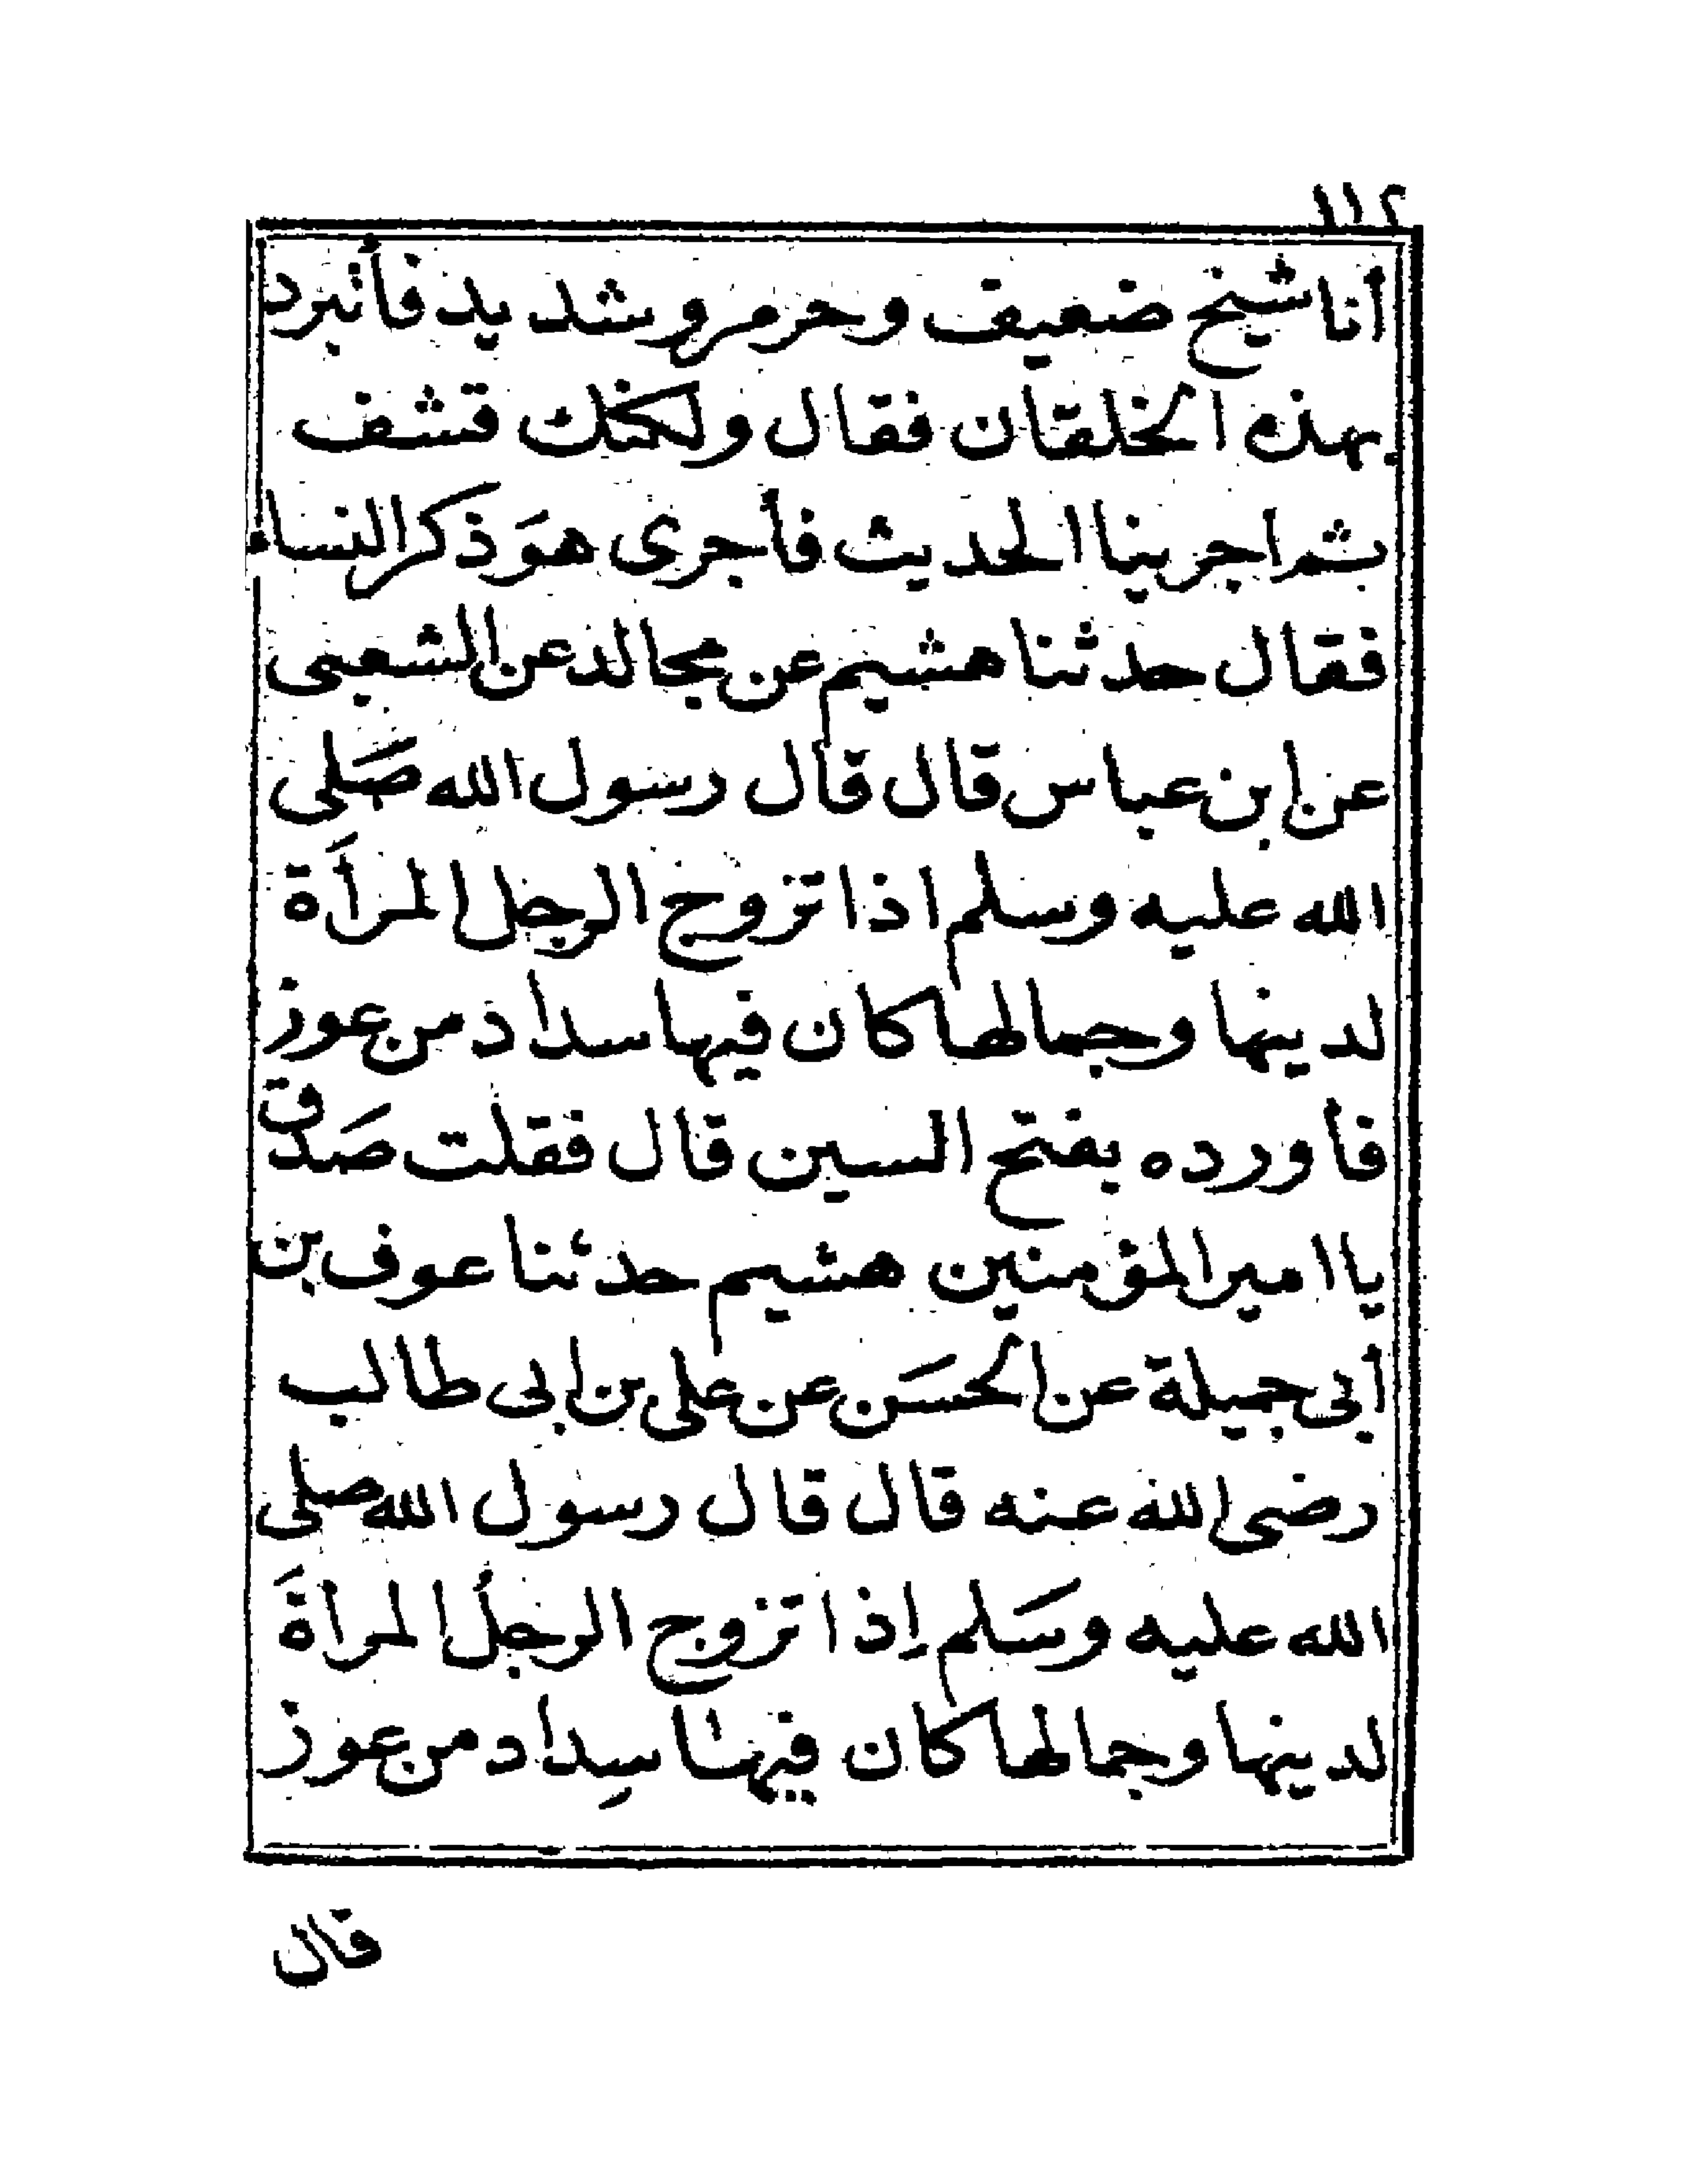 ١١٢
أنا شيخ ضعيف وحر مرو شديد فأتبرد
بهذه الخلقان فقال ولكنك قشف
ثم اجرينا الحديث فأجرى هوَ ذكر النساء
فقال حدثنا هشيم عن مجالد عن الشعبى
عن ابن عباس قال قال رسول الله صَلى
الله عليه وسلم اذا تزوج الرجل المرأَة
لدينها وجمالها كان فيها سداد من عوز
فأورده بفتح السين قال فقلت صَدق
يا امير المؤمنين هشيم حدثنا عوف بن
أبى جميلة عن الحسَن عن على بن ابى طالب
رضى الله عنه قال قال رسول الله صلى
الله عليه وسَلم إذا تزوج الرجلُ المرأةَ
لدينها وجمالها كان فيها سِداد من عوز
قال